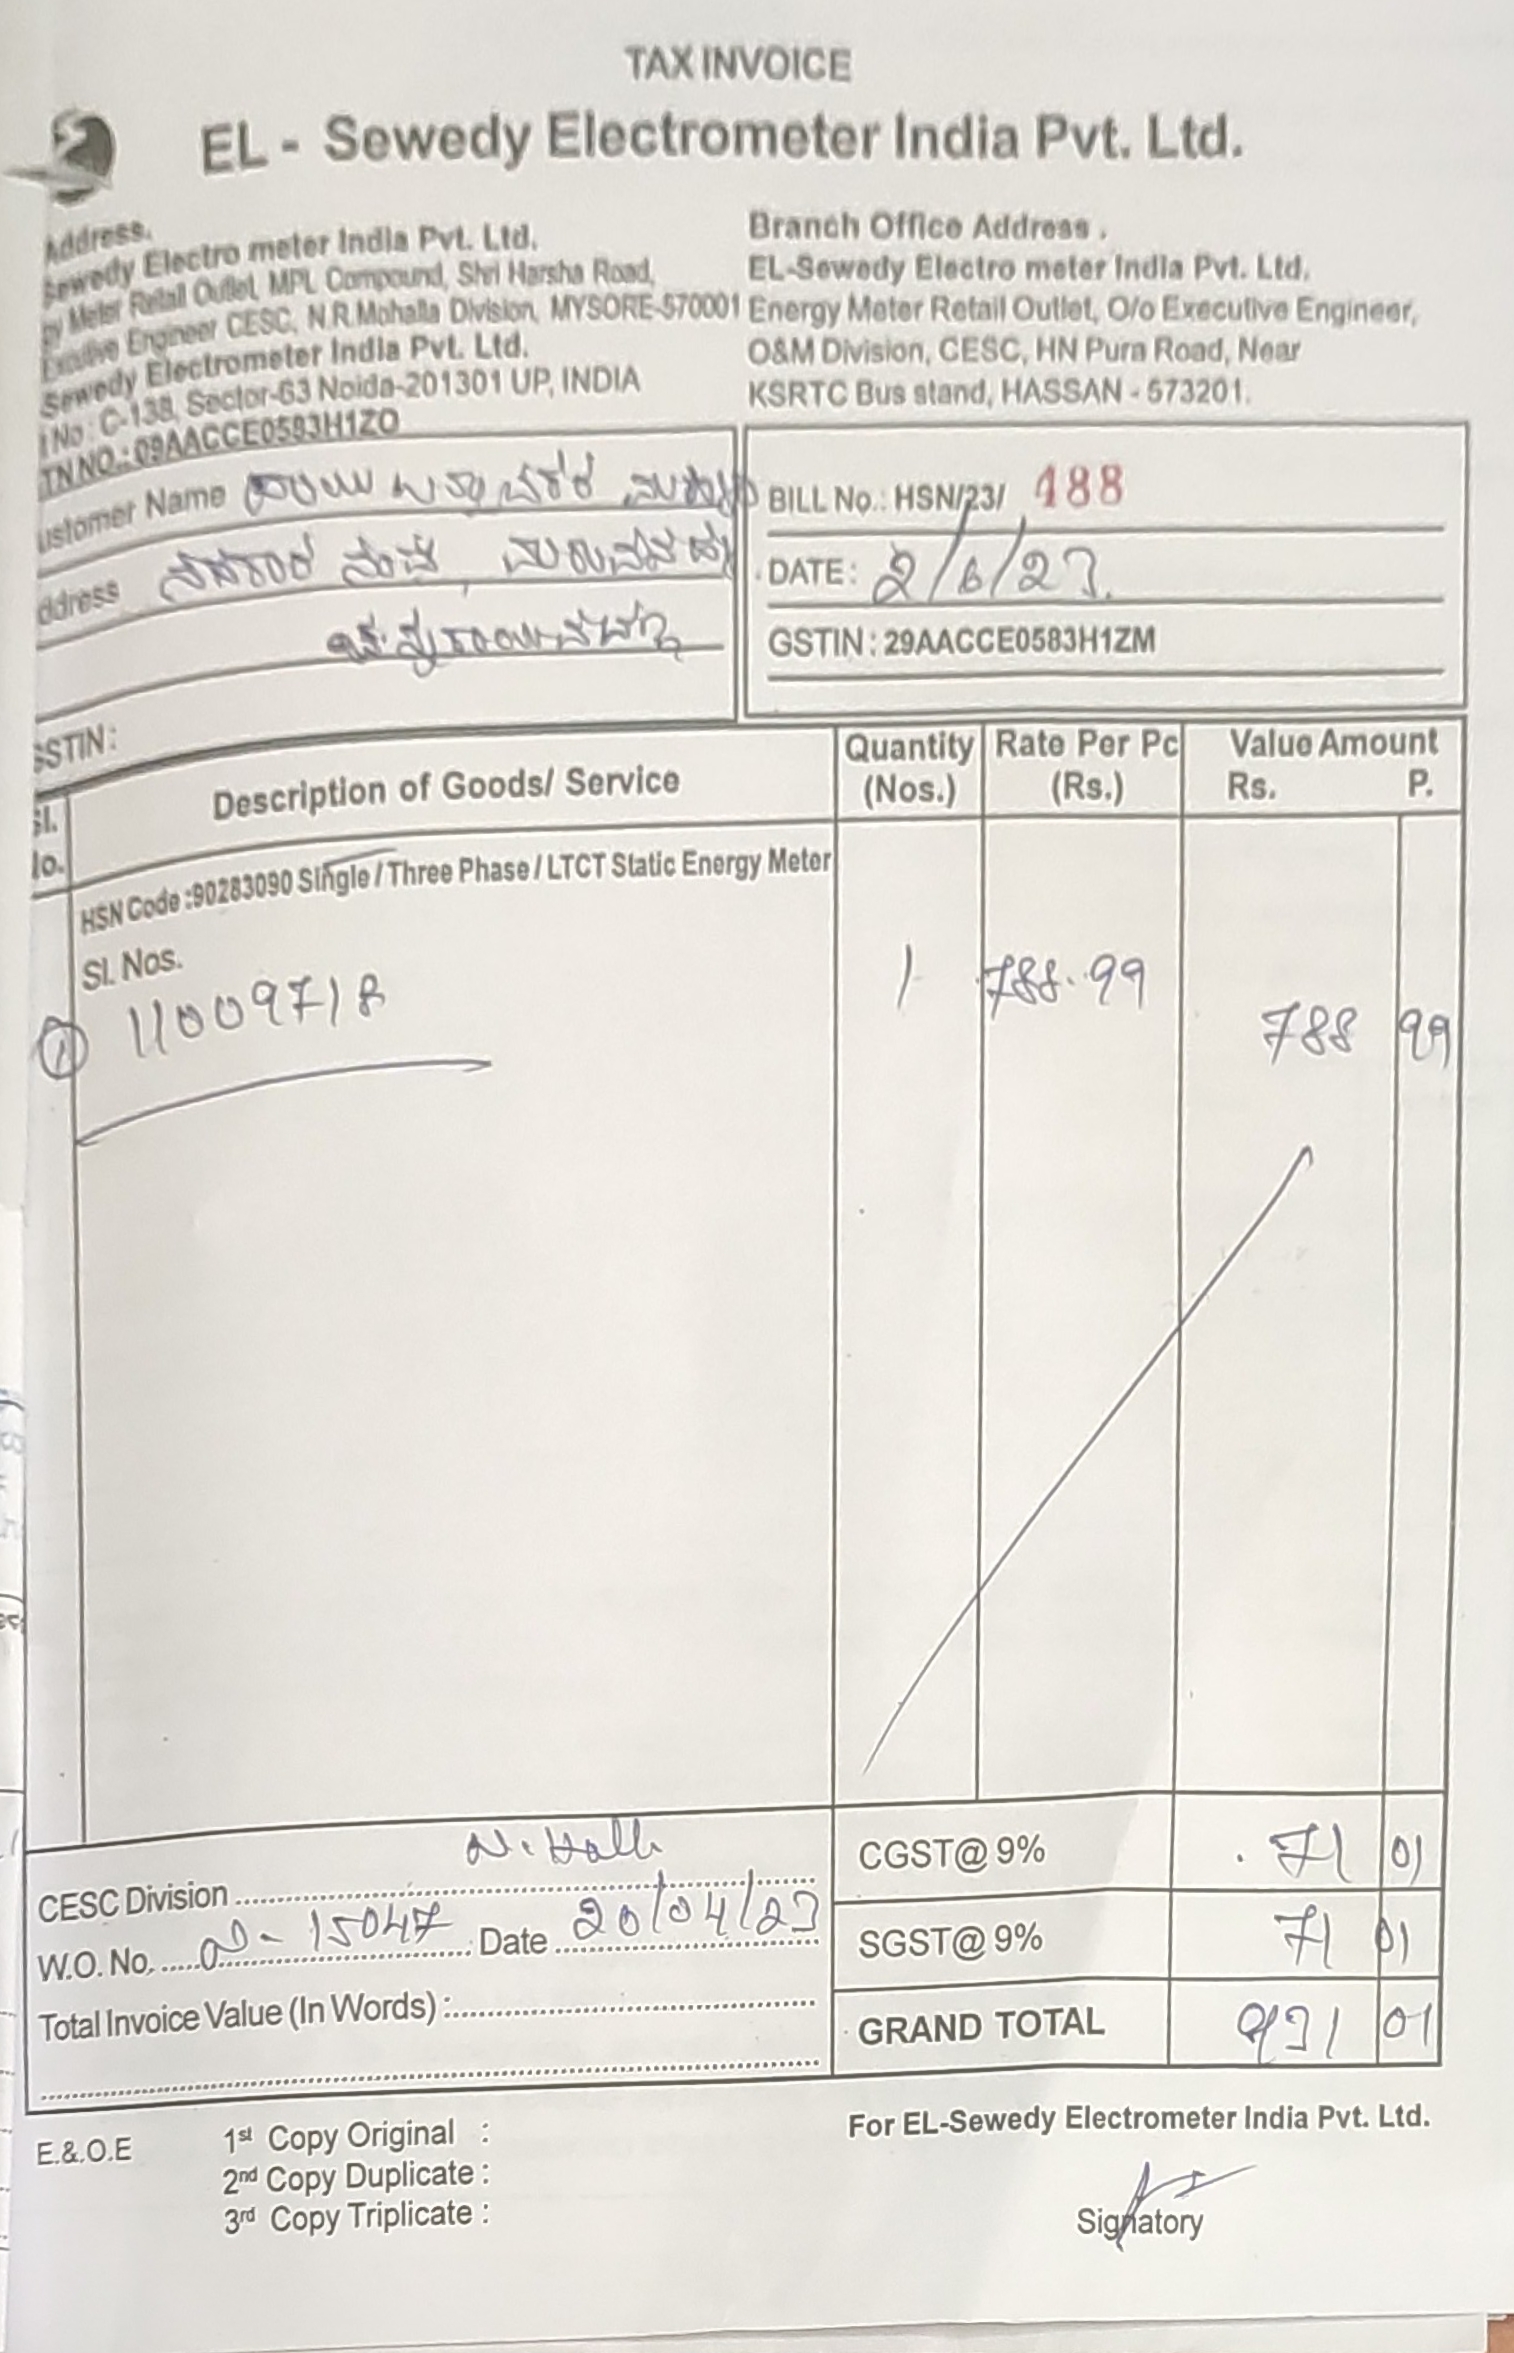 TAX INVOICE
EL - Sewedy Electrometer India Pvt. Ltd.
Address.
Sewedy Electro meter India Pvt. Ltd.
Meter Retail Outlet, MPL Compound, Shri Harsha Road,
Engineer CESC, N.R.Mohalla Division, MYSORE-570001
Sewedy Electrometer India Pvt. Ltd.
No : C-138, Sector-63 Noida-201301 UP, INDIA
TN NO.: 09AACCE0583H1ZO
Branch Office Address .
EL-Sewedy Electro meter India Pvt. Ltd.
Energy Meter Retail Outlet, O/o Executive Engineer,
O&M Division, CESC, HN Pura Road, Near
KSRTC Bus stand, HASSAN - 573201.
ustomer Name
ddress
BILL No.: HSN/23/ 488
DATE: 2/6/23.
GSTIN : 29AACCE0583H1ZM
GSTIN:
Sl. No. Description of Goods/ Service Quantity (Nos.) Rate Per Pc (Rs.) Value Amount Rs. P.
HSN Code :90283090 Single / Three Phase / LTCT Static Energy Meter
Sl. Nos.
1 11009718 1 788.99 788 99
CESC Division N. Halli
W.O. No. 15047 Date 20/04/23
Total Invoice Value (In Words) :
CGST@ 9% 71 01
SGST@ 9% 71 01
GRAND TOTAL 931 01
E.&.O.E
1st Copy Original :
2nd Copy Duplicate :
3rd Copy Triplicate :
For EL-Sewedy Electrometer India Pvt. Ltd.
Signatory